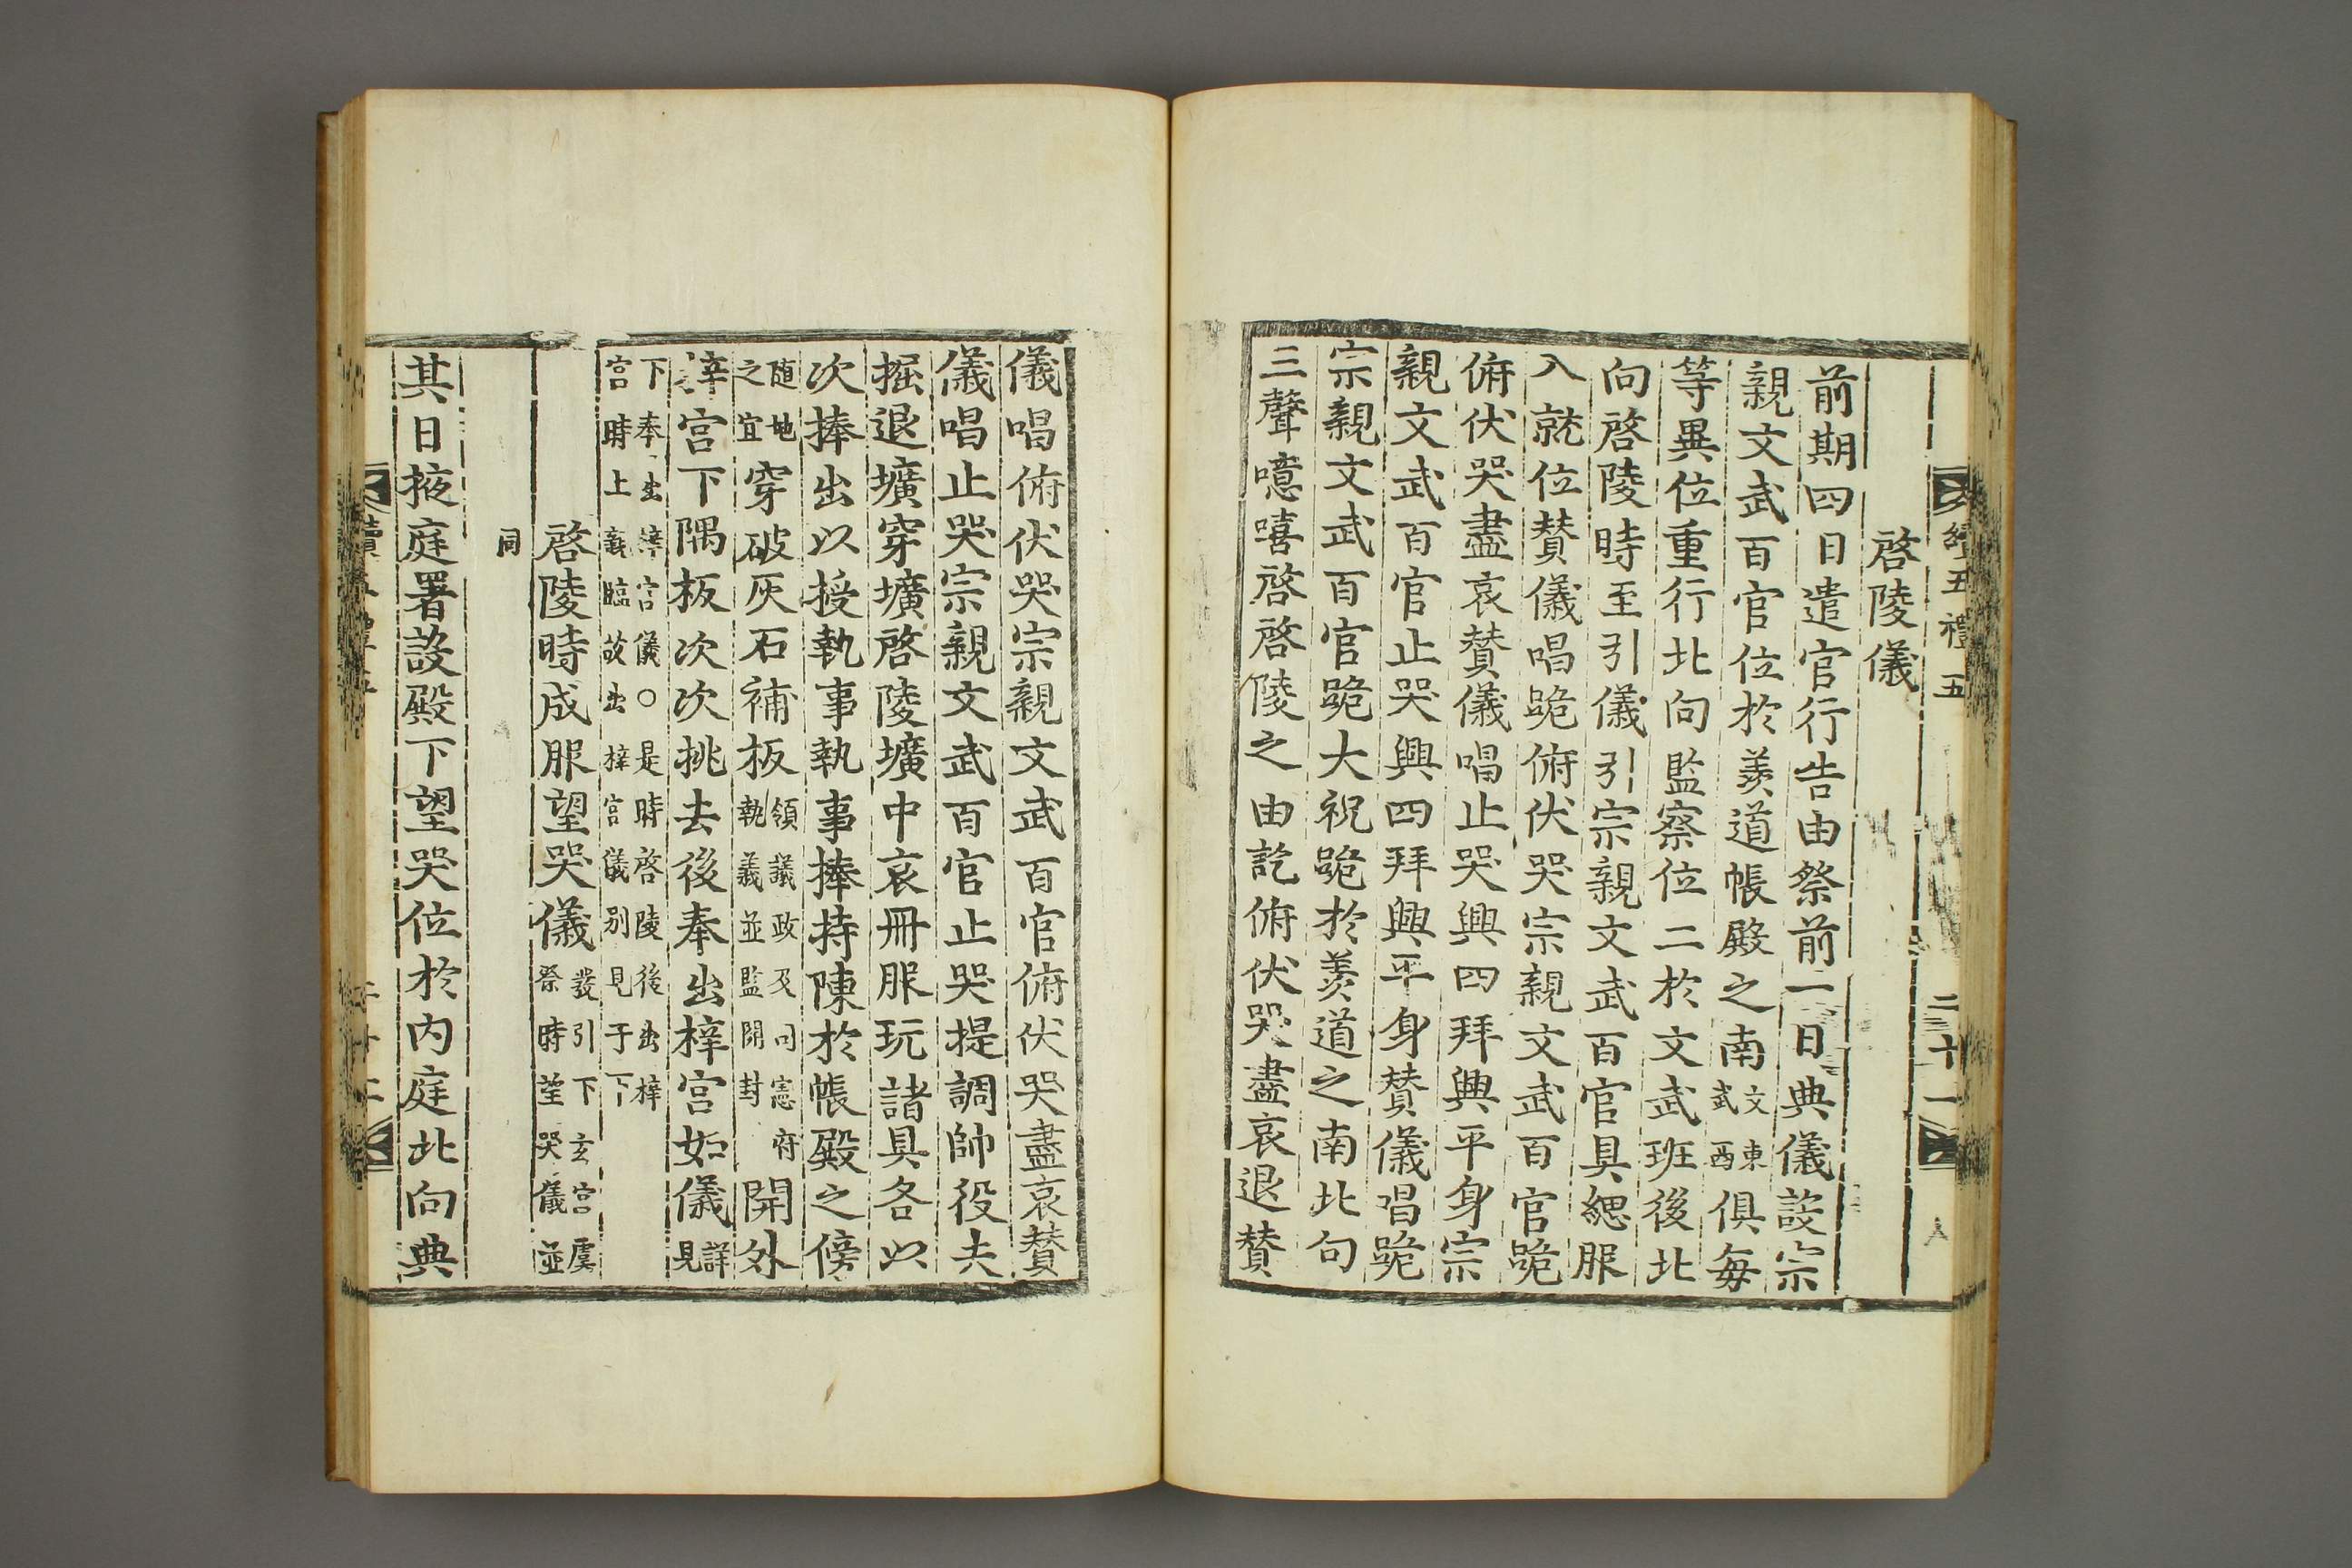 續五禮五
二十一
啓陵儀
前期四日遣官行告由祭前一日典儀設宗
親文武百官位於羨道帳殿之南文東武西俱每
等異位重行北向監察位二於文武班後北
向啓陵時至引儀引宗親文武百官具緦服
入就位賛儀唱跪俯伏哭宗親文武百官跪
俯伏哭盡哀賛儀唱止哭興四拜興平身宗
親文武百官止哭興四拜興平身賛儀唱跪
宗親文武百官跪大祝跪於羨道之南北向
三聲噫嘻啓啓陵之由訖俯伏哭盡哀退賛
儀唱俯伏哭宗親文武百官俯伏哭盡哀賛
儀唱止哭宗親文武百官止哭提調帥役夫
掘退壙穿壙啓陵壙中哀冊服玩諸具各以
次捧出以授執事執事捧持陳於帳殿之傍
随地之宜穿破灰石補板領議政及司憲府執義並監開封開外
梓宮下隅板次次挑去後奉出梓宮如儀詳見
下奉出梓宮儀○是時啓陵後出梓
宮時上親臨故出梓宮儀别見于下
啓陵時成服望哭儀發引下玄宮虞祭時望哭儀並
同
其日掖庭署設殿下望哭位於内庭北向典